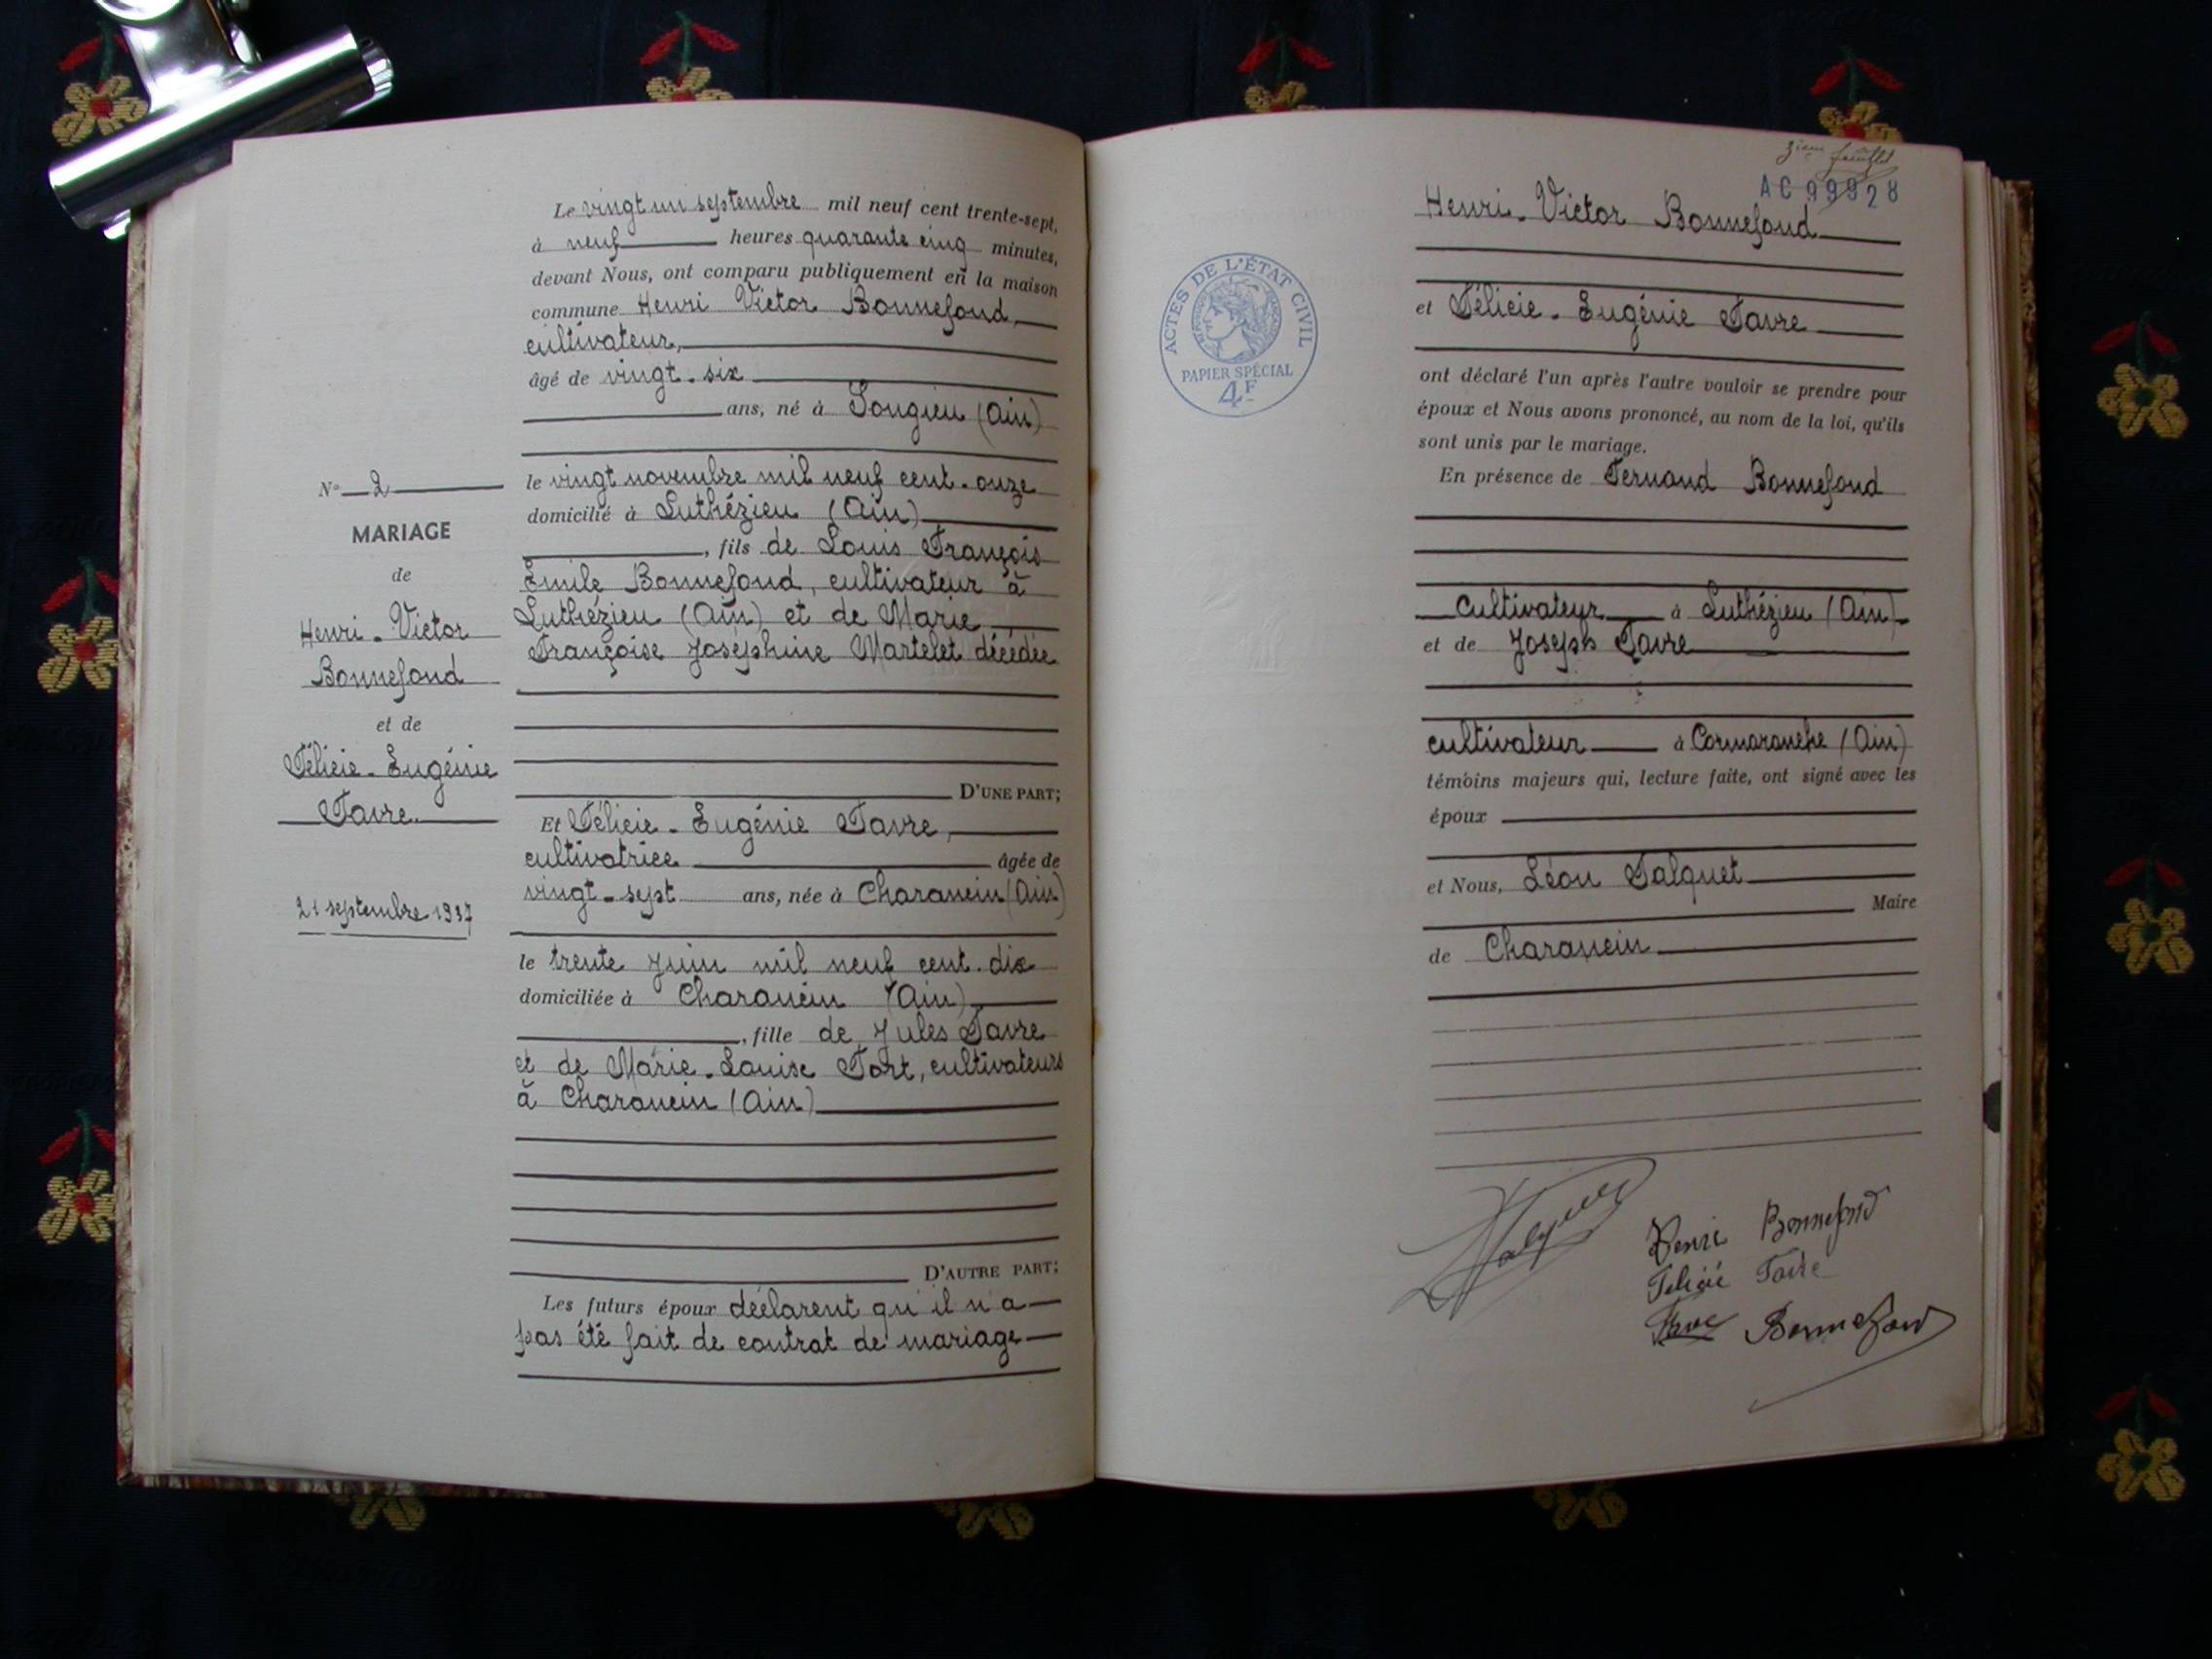 Le vingt un septembre mil neuf cent trente-sept,
à neuf heures quarante cinq minutes,
devant Nous, ont comparu publiquement en la maison
commune Henri Victor Bonnefond,
cultivateur,
âgé de vingt-six
ans, né à Songieu (Ain)
le vingt novembre mil neuf cent-onze
domicilié à Luthézieu (Ain)
, fils de Louis François
Emile Bonnefond, cultivateur à
Luthézieu (Ain) et de Marie
Françoise Joséphine Martelet décédée
D'UNE PART;
Et Félicie-Eugénie Favre,
cultivatrice âgée de
vingt-sept ans, née à Charancin (Ain)
le trente Juin mil neuf cent-dix
domiciliée à Charancin (Ain)
, fille de Jules Favre
et de Marie-Louise Fort, cultivateurs
à Charancin (Ain)
D'AUTRE PART;
Les futurs époux déclarent qu'il n'a
pas été fait de contrat de mariage
N° 2
MARIAGE
de
Henri-Victor
Bonnefond
et de
Félicie-Eugénie
Favre.
21 septembre 1937
3ième feuillet
AC 99928
ACTES DE L'ÉTAT CIVIL
PAPIER SPÉCIAL
4F
Henri-Victor Bonnefond
et Félicie-Eugénie Favre
ont déclaré l'un après l'autre vouloir se prendre pour
époux et Nous avons prononcé, au nom de la loi, qu'ils
sont unis par le mariage.
En présence de Fernand Bonnefond
cultivateur à Luthézieu (Ain)
et de Joseph Favre
cultivateur à Cormaranche (Ain)
témoins majeurs qui, lecture faite, ont signé avec les
époux
et Nous, Léon Falquet
Maire
de Charancin
Falquet
Henri Bonnefond
Félicie Favre
Favre Bonnefond